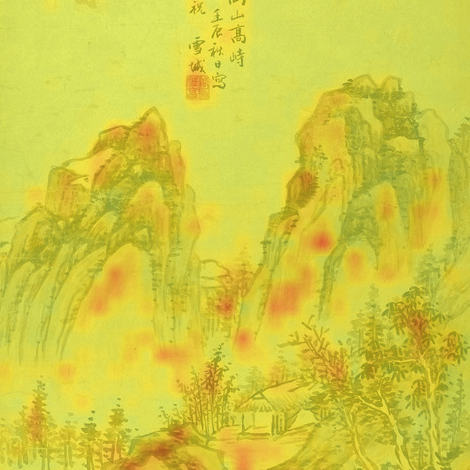 山高峙
壬辰秋日寫
祝 雪城